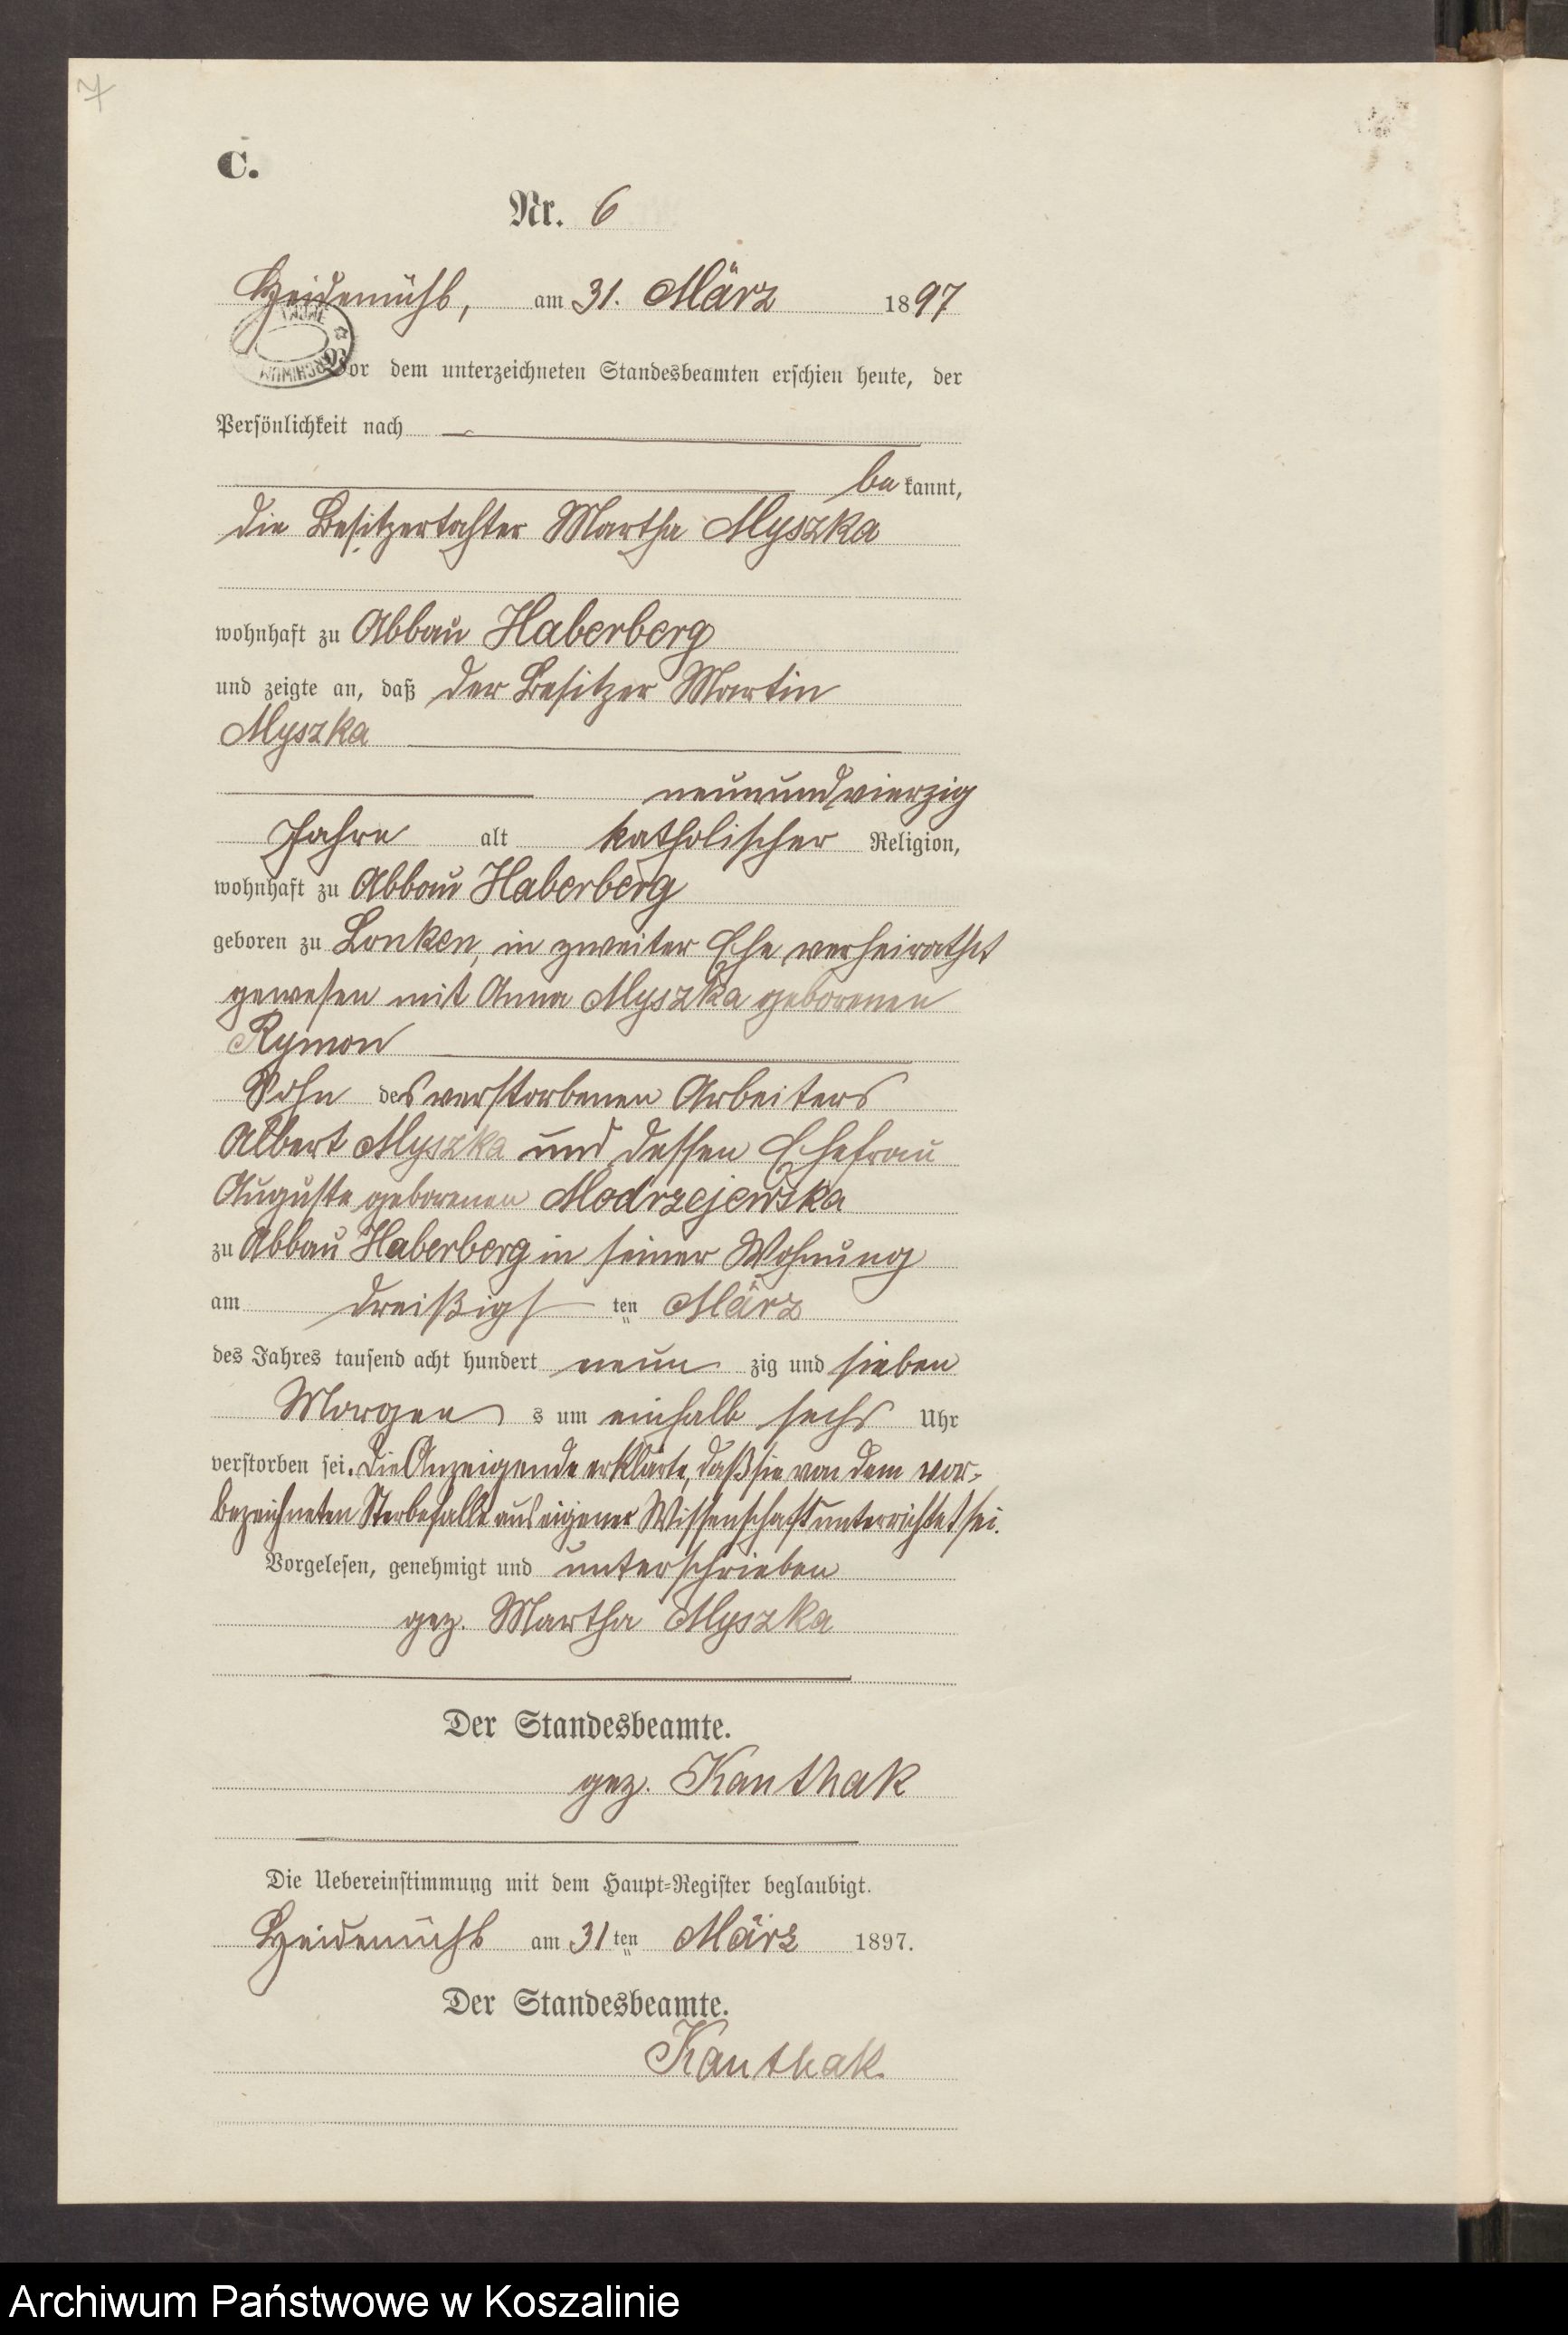 7
C.
Nr. 6
Heidemühl, am 31. März 1897
Vor dem unterzeichneten Standesbeamten erschien heute, der
Persönlichkeit nach
be kannt,
die Besitzertochter Martha Myszka
wohnhaft zu Abbau Haberberg
und zeigte an, daß der Besitzer Martin
Myszka
neunundvierzig
Jahre alt katholischer Religion,
wohnhaft zu Abbau Haberberg
geboren zu Lonken, in zweiter Ehe verheirathet
gewesen mit Anna Myszka geborenen
Rymon
Sohn des verstorbenen Arbeiters
Albert Myszka und dessen Ehefrau
Auguste geborenen Modrzejewska
zu Abbau Haberberg in seiner Wohnung
am dreißigsten März
des Jahres tausend acht hundert neun zig und sieben
Morgens um einhalb sechs Uhr
verstorben sei. Die Anzeigende erklärte, daß sie von dem vor-
bezeichneten Sterbefalle aus eigener Wissenschaft unterrichtet sei.
Vorgelesen, genehmigt und unterschrieben
gez. Martha Myszka
Der Standesbeamte.
gez. Kanthak
Die Uebereinstimmung mit dem Haupt-Register beglaubigt.
Heidemühl am 31ten März 1897.
Der Standesbeamte.
Kanthak.
Archiwum Państwowe w Koszalinie